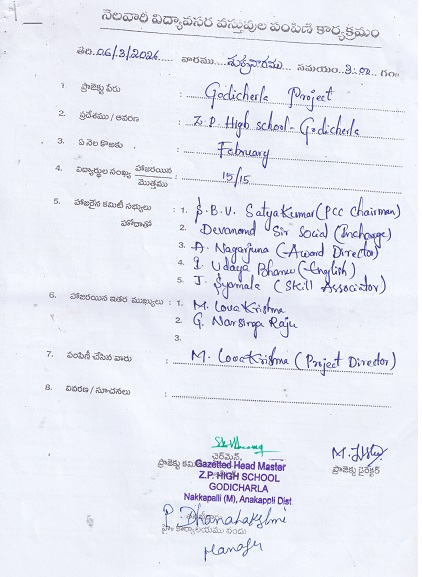 నెలవారీ విద్యావసర వస్తువుల పంపిణీ కార్యక్రమం
తేది.06/2/2026 వారము శుక్రవారము సమయం. 3:00 గం
1. ప్రాజెక్టు పేరు : Godicherla Project
2. ప్రదేశము / ఆవరణ : Z.P. High school - Godicherla
3. ఏ నెల కొఱకు : February
4. విద్యార్థుల సంఖ్య హాజరయిన / మొత్తము : 15/15
5. హాజరైన కమిటీ సభ్యులు హోదాతో : 1. S.B.V. Satya Kumar (PCC Chairman)
2. Devanand Sir Social (Incharge)
3. A. Nagarjuna (Award Director)
4. I. Udaya Bhanu (English)
5. J. Syamala (Skill Associator)
6. హాజరయిన ఇతర ముఖ్యులు : 1. M. Lova Krishna
2. G. Narsinga Raju
3.
7. పంపిణీ చేసిన వారు : M. Lova Krishna (Project Director)
8. వివరణ / సూచనలు :
చైర్‌మెన్
ప్రాజెక్టు కమిటీ
ప్రాజెక్టు డైరెక్టర్
Gazetted Head Master
Z.P. HIGH SCHOOL
GODICHARLA
Nakkapalli (M), Anakapalli Dist
P. Dhanalakshmi
కార్యాలయము నందు
Manager